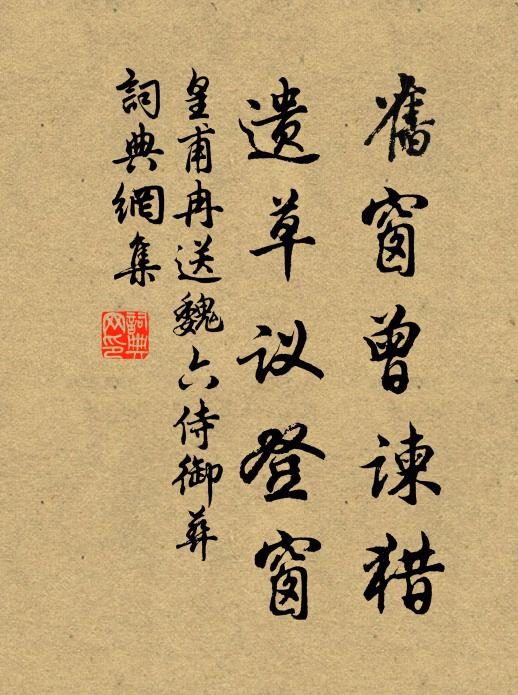 舊窗曾諫猎
遗草议登窗
皇甫冉送魏六侍御葬
詞典網集
詞典网印